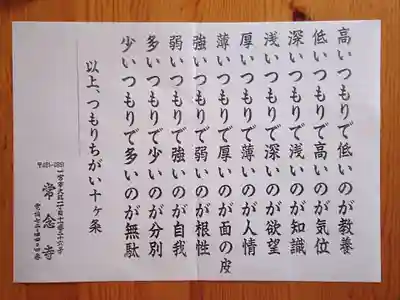 高いつもりで低いのが教養
低いつもりで高いのが気位
深いつもりで浅いのが知識
浅いつもりで深いのが欲望
厚いつもりで薄いのが人情
薄いつもりで厚いのが面の皮
強いつもりで弱いのが根性
弱いつもりで強いのが自我
多いつもりで少いのが分別
少いつもりで多いのが無駄
以上、つもりちがい十ヶ条
常念寺